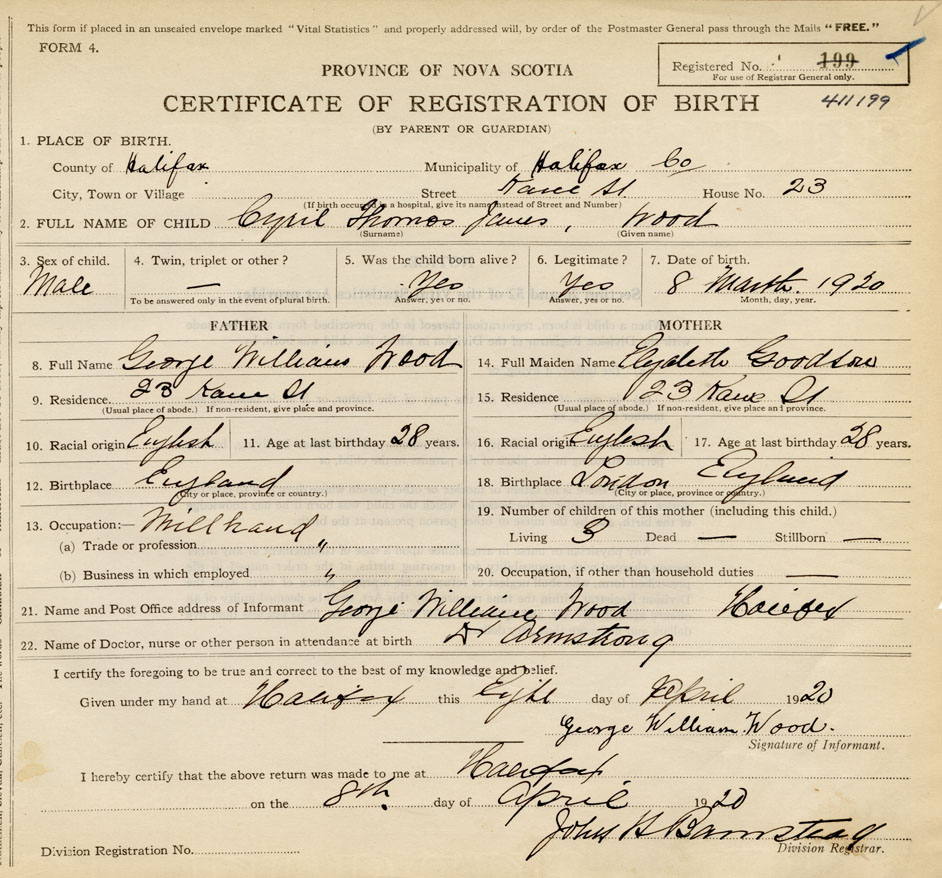 This form if placed in an unsealed envelope marked "Vital Statistics" and properly addressed will, by order of the Postmaster General pass through the Mails "FREE."
FORM 4.
Registered No. 199
For use of Registrar General only.
PROVINCE OF NOVA SCOTIA
CERTIFICATE OF REGISTRATION OF BIRTH
411199
(BY PARENT OR GUARDIAN)
1. PLACE OF BIRTH.
County of Halifax Municipality of Halifax Co
City, Town or Village Street Kane St. House No. 23
(If birth occurred in a hospital, give its name instead of Street and Number)
2. FULL NAME OF CHILD Cyril Thomas James, Wood
(Surname) (Given name)
3. Sex of child. 4. Twin, triplet or other? 5. Was the child born alive? 6. Legitimate? 7. Date of birth.
Male — Yes Yes 8 March. 1920
To be answered only in the event of plural birth. Answer, yes or no. Answer, yes or no. Month, day, year.
FATHER MOTHER
8. Full Name George William Wood 14. Full Maiden Name Elizabeth Goodson
9. Residence. 23 Kane St 15. Residence 23 Kane St
(Usual place of abode.) If non-resident, give place and province. (Usual place of abode.) If non-resident, give place and province.
10. Racial origin English 11. Age at last birthday 28 years. 16. Racial origin English 17. Age at last birthday 28 years.
12. Birthplace England 18. Birthplace London England
(City or place, province or country.) (City or place, province or country.)
13. Occupation:— Millhand 19. Number of children of this mother (including this child.)
(a) Trade or profession " Living 3 Dead — Stillborn —
(b) Business in which employed " 20. Occupation, if other than household duties —
21. Name and Post Office address of Informant George William Wood Halifax
22. Name of Doctor, nurse or other person in attendance at birth Dr Armstrong
I certify the foregoing to be true and correct to the best of my knowledge and belief.
Given under my hand at Halifax this day of April 1920
George William Wood.
Signature of Informant.
I hereby certify that the above return was made to me at Halifax
on the 8th. day of April 1920
John H Barnstead
Division Registration No. Division Registrar.